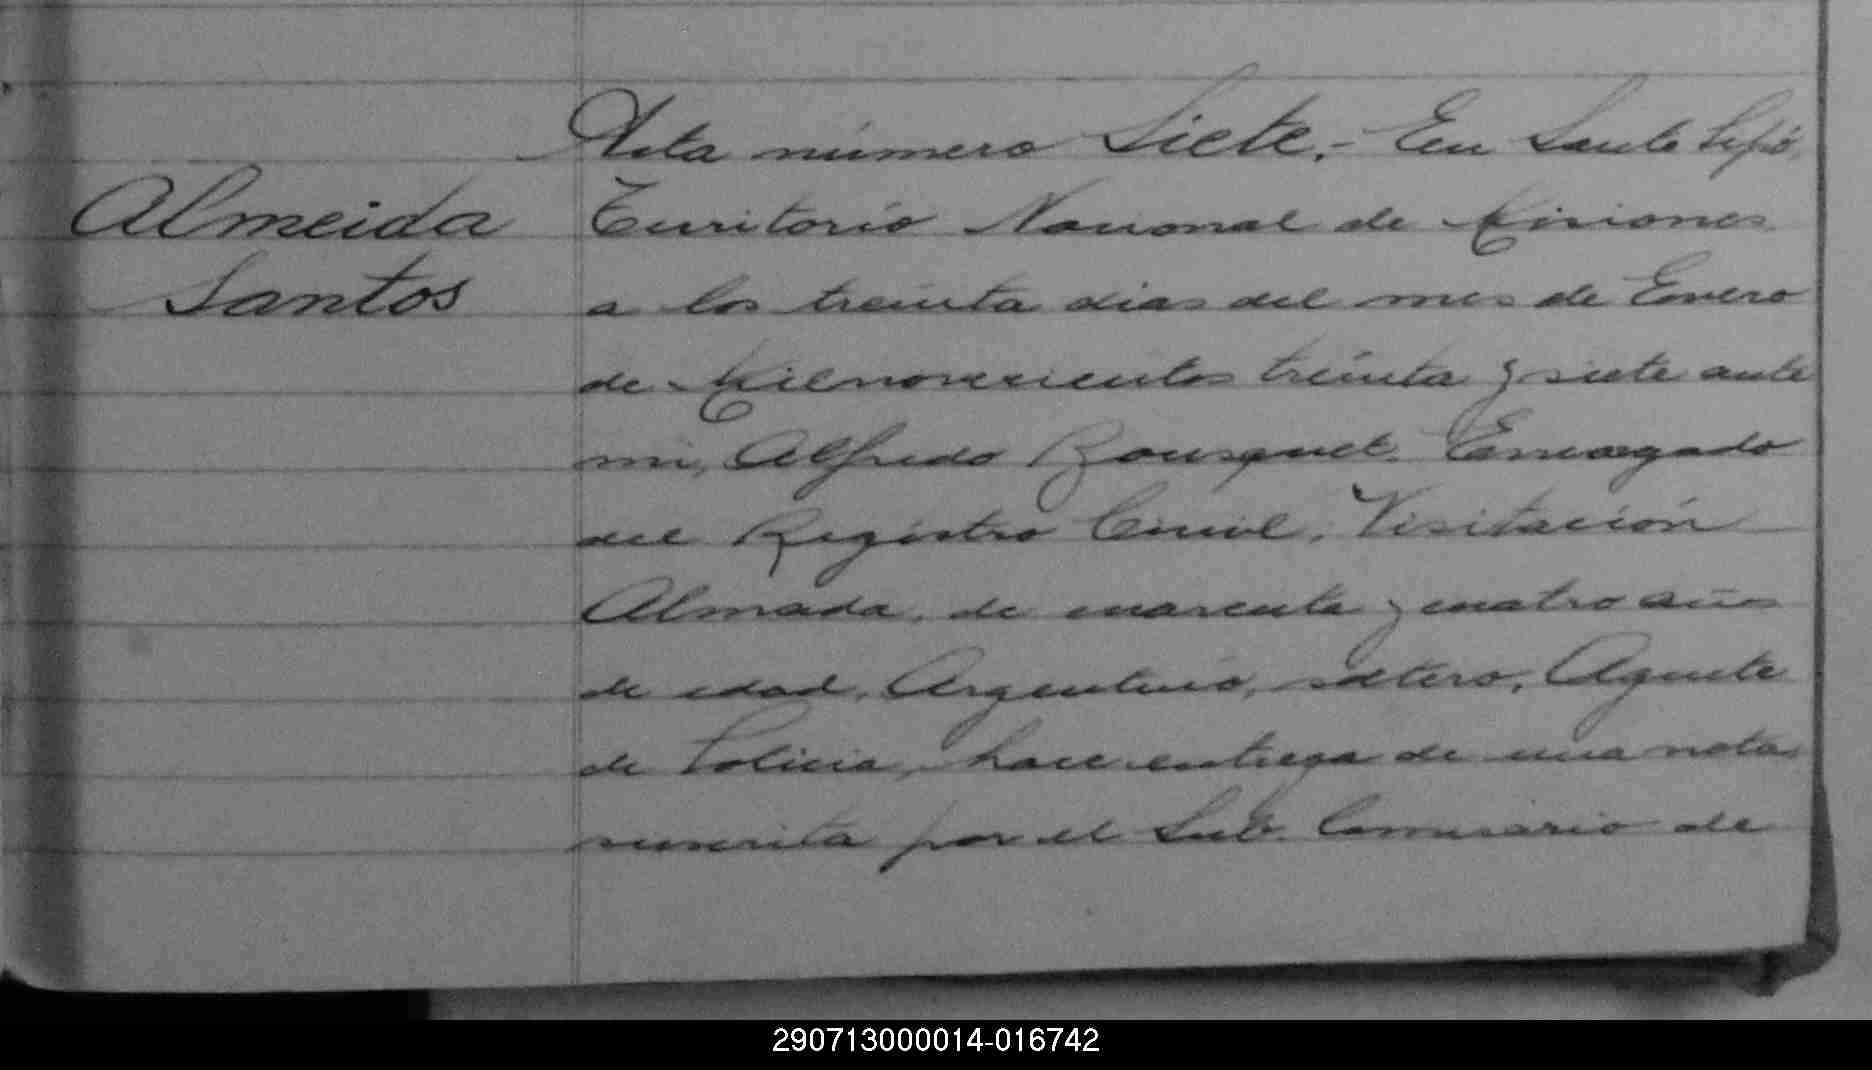 Acta número Siete.- En Santo Pipó,
Almeida
Santos
Territorio Nacional de Misiones
a los treinta dias del mes de Enero
de Milnovecientos treinta y siete ante
mi, Alfredo Bousquet. Encargado
del Registro Civil, Visitación
Almada, de cuarenta y cuatro años
de edad, Argentino, soltero, Agente
de Policia, hace entrega de una nota
suscrita por el Sub. Comisario de
290713000014-016742